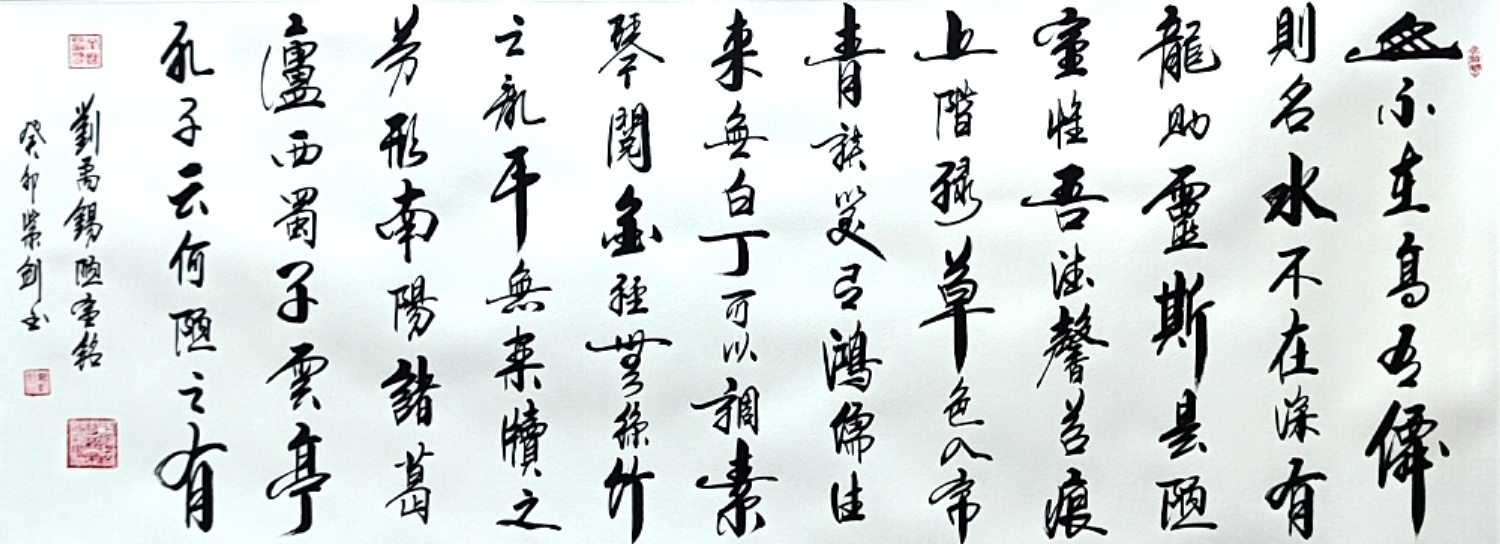 山不在高有僊
則名水不在深有
龍則靈斯是陋
室惟吾德馨苔痕
上階緑草色入帘
青談笑有鴻儒往
来無白丁可以調素
琴閱金經無絲竹
之亂耳無案牘之
勞形南陽諸葛
廬西蜀子雲亭
孔子云何陋之有
劉禹錫陋室銘
癸卯柴劍书